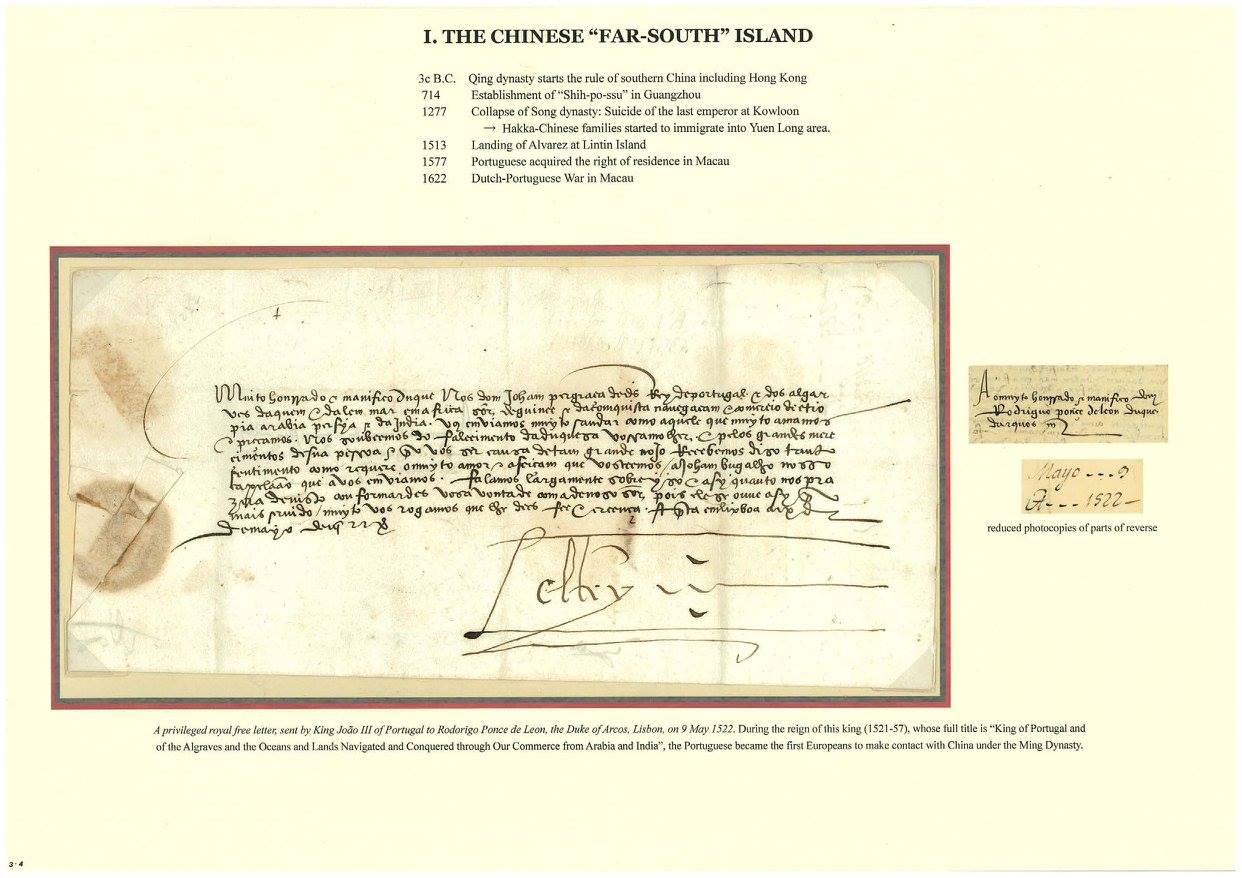 I. THE CHINESE “FAR-SOUTH” ISLAND
3c B.C. Qing dynasty starts the rule of southern China including Hong Kong
714 Establishment of “Shih-po-ssu” in Guangzhou
1277 Collapse of Song dynasty: Suicide of the last emperor at Kowloon
→ Hakka-Chinese families started to immigrate into Yuen Long area.
1513 Landing of Alvarez at Lintin Island
1577 Portuguese acquired the right of residence in Macau
1622 Dutch-Portuguese War in Macau
Muito honrrado & manifico Duque Nos dom Joham per graca de ds Rey de portugal & dos algar
ves daquem & dalem mar em africa de guinee & da comquista navegacam & comercio de etio
pia arabia persya & da India. vos emviamos muyto saudar como aquele que muyto amamos
& precamos. Nos soubemos do falecimento da duquesa vossa molher. & pelos grandes mere
cimentos de sua pessoa
sentimento como requere o muyto amor & afeicam que vos teemos
capelaão que a vos emviamos. falamos largamente sobre & asy quanto nos pra
conformardes vosa vontade com a de noso pois ele se ouve asy
mais servido / muyto vos rogamos que lhe dees fee & creença. em lixboa
de mayo
el Rey
A o muyto honrrado & manifico
Rodriguo ponce de leon duque
darquos
Mayo --- 9
A --- 1522 –
reduced photocopies of parts of reverse
A privileged royal free letter, sent by King João III of Portugal to Rodorigo Ponce de Leon, the Duke of Arcos, Lisbon, on 9 May 1522. During the reign of this king (1521-57), whose full title is “King of Portugal and
of the Algraves and the Oceans and Lands Navigated and Conquered through Our Commerce from Arabia and India”, the Portuguese became the first Europeans to make contact with China under the Ming Dynasty.
3-4